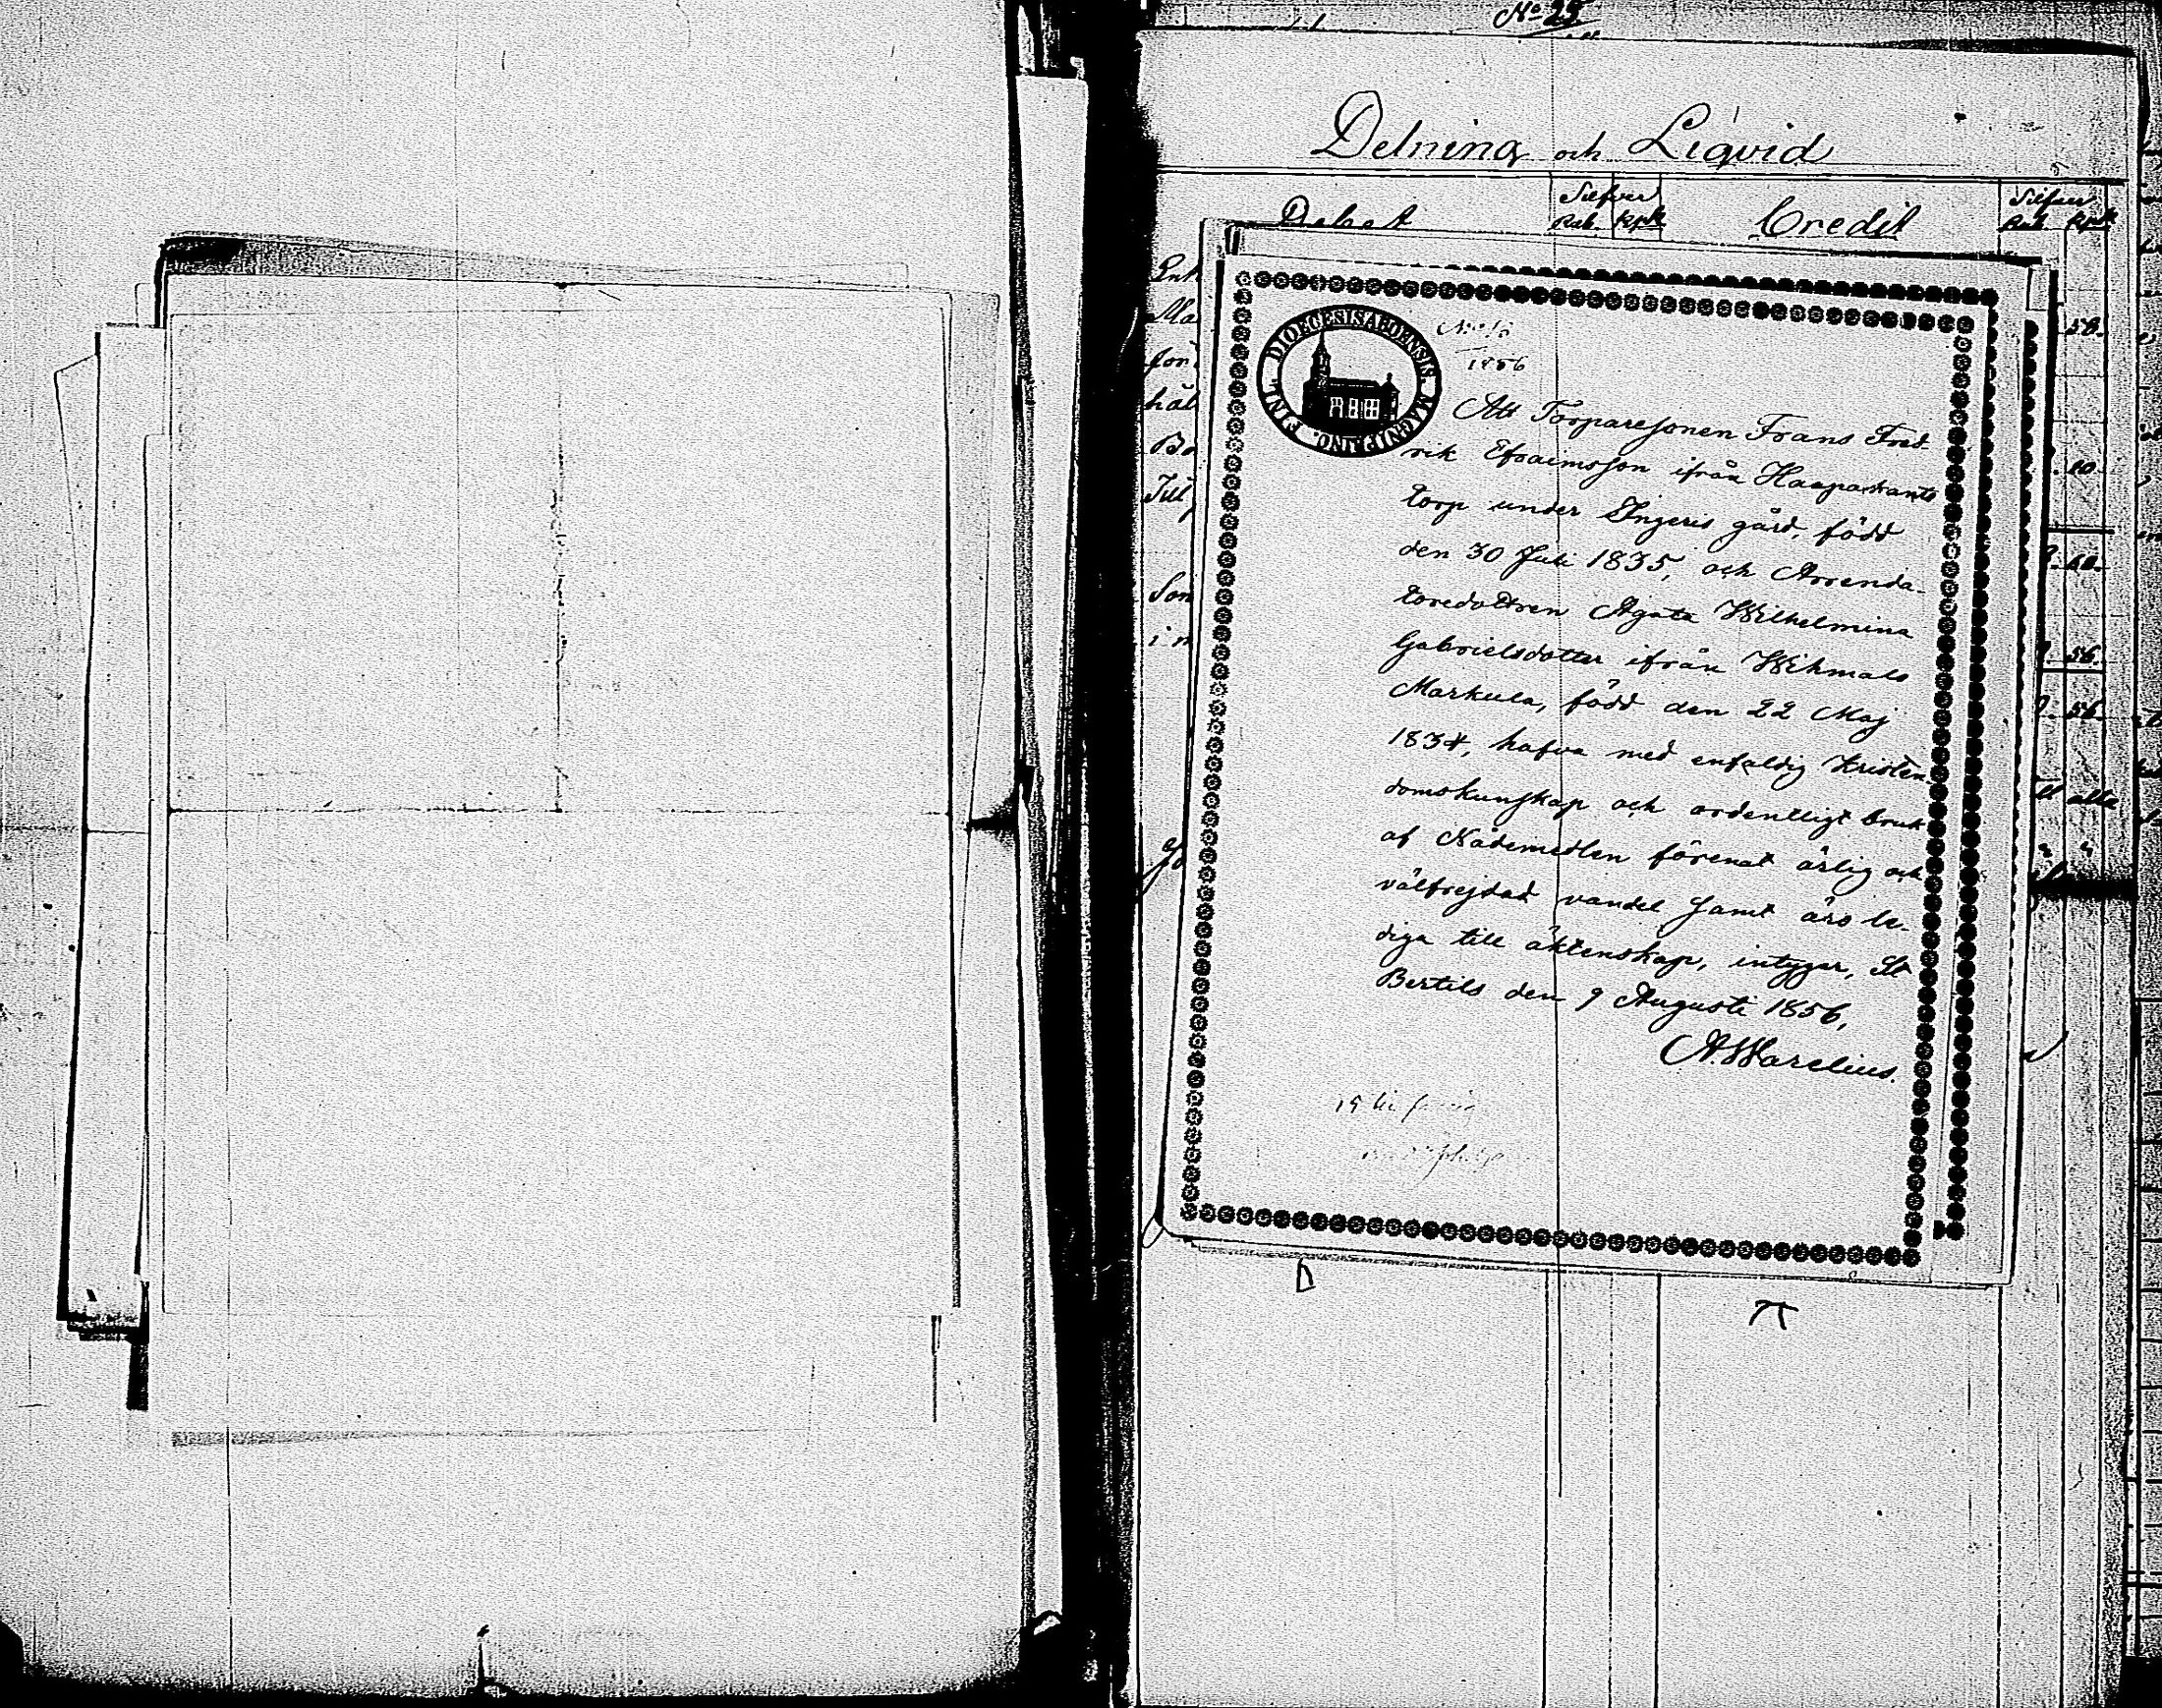 No 25
Delning och Liqvid
Debet
Silfver
Rub. Kpk
Credit
Silfver
Rub. Kpk
DIOECESIS ABOENSIS. MAGNI PRINC. FINL.
1856
Att Torparesonen Frans Fred-
rik Efraimsson ifrån Haapastants
torp under Ingeris gård, född
den 30 Juli 1835, och Arrenda-
toredottren Agata Wilhelmina
Gabrielsdotter ifrån Wihmals
Markula, född den 22 Maj
1834, hafva med enfaldig Kristen-
domskunskap och ordentligt bruk
af Nådemedlen förenat ärlig och
välfrejdad vandel samt äro le-
diga till äktenskap, intygar, St
Bertils den 9 Augusti 1856,
A. Warelius.
50.
10.
60.
56.
56.